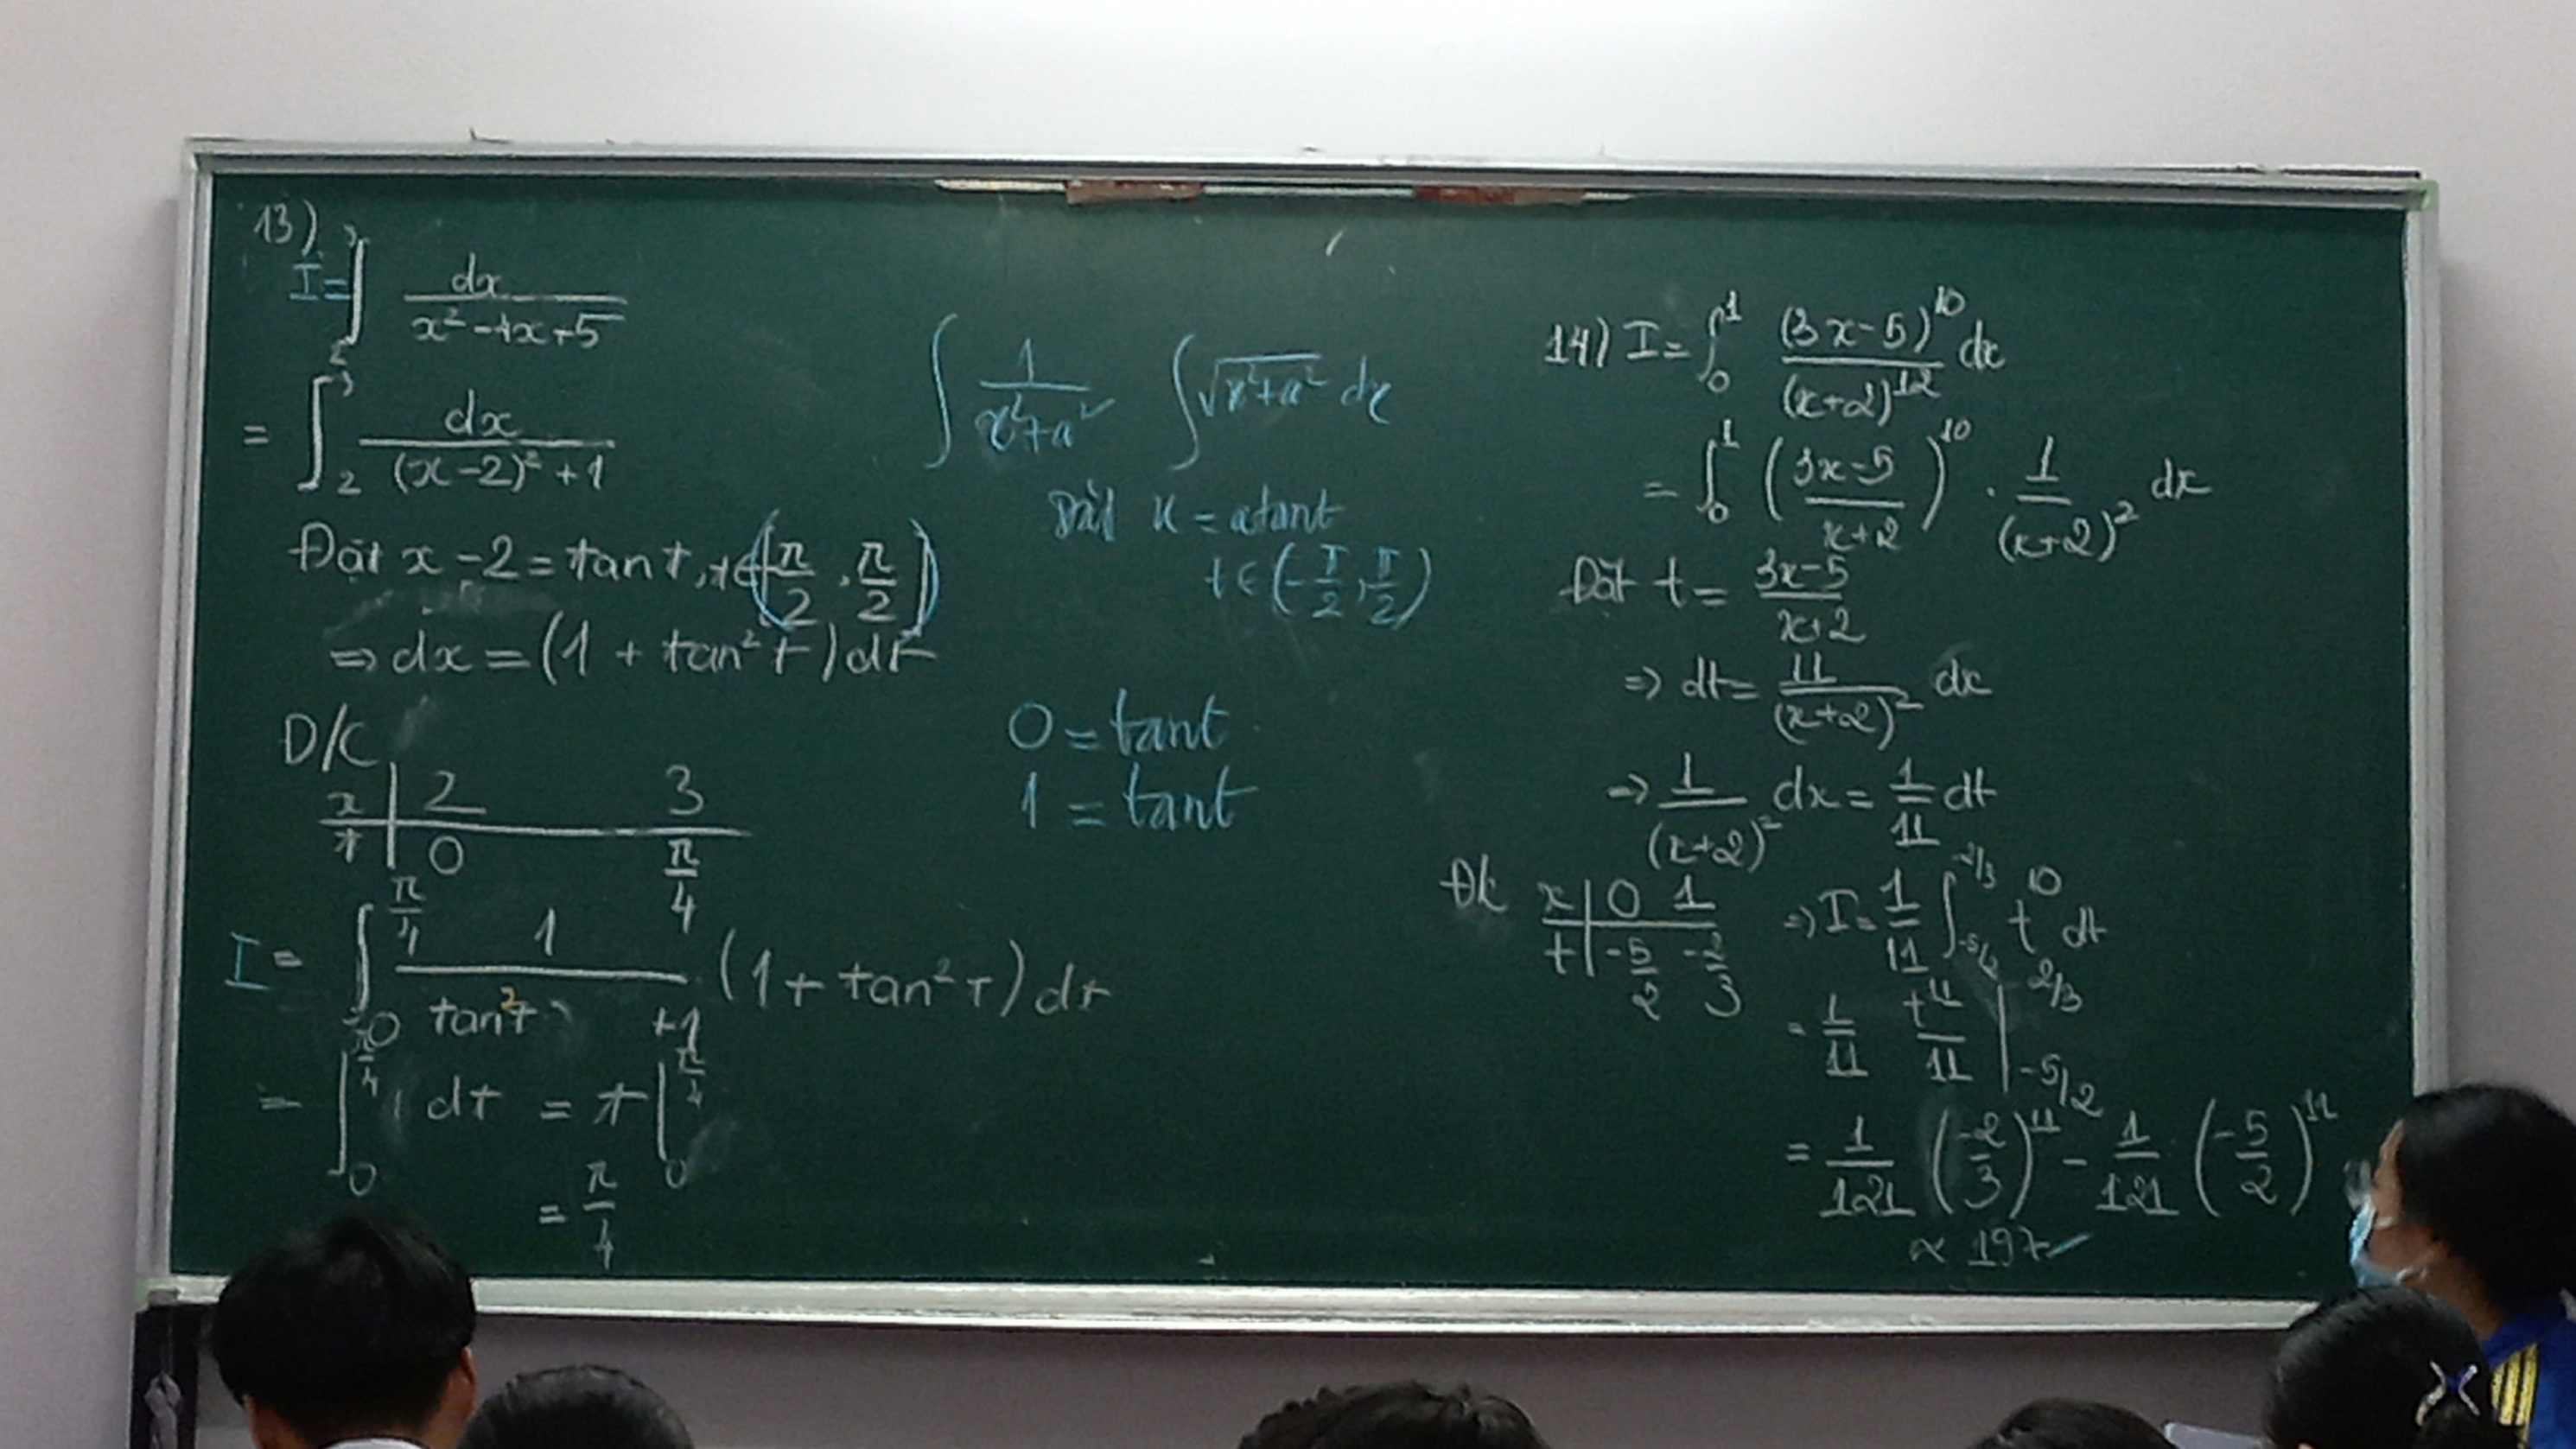 13)
I = ∫₂³ dx/(x² - 4x + 5)
= ∫₂³ dx/((x - 2)² + 1)
Đặt x - 2 = tan t, t ∈ (-π/2, π/2)
⇒ dx = (1 + tan² t) dt
Đ/C
x | 2 3
t | 0 π/4
I = ∫₀^(π/4) 1/(tan² t + 1) (1 + tan² t) dt
= ∫₀^(π/4) 1 dt = t |₀^(π/4)
= π/4
∫ 1/(x² + a²) ∫ √(x² + a²) dx
Đặt x = a tan t
t ∈ (-π/2, π/2)
0 = tan t
1 = tan t
14) I = ∫₀¹ (3x - 5)^10/(x + 2)^12 dx
= ∫₀¹ ((3x - 5)/(x + 2))^10 . 1/(x + 2)² dx
Đặt t = (3x - 5)/(x + 2)
⇒ dt = 11/(x + 2)² dx
⇒ 1/(x + 2)² dx = 1/11 dt
Đk x | 0 1
t | -5/2 -2/3
⇒ I = 1/11 ∫_(-5/2)^(-2/3) t^10 dt
= 1/11 t^11/11 |_(-5/2)^(2/3)
= 1/121 (-2/3)^11 - 1/121 (-5/2)^11
≈ 197 ✓